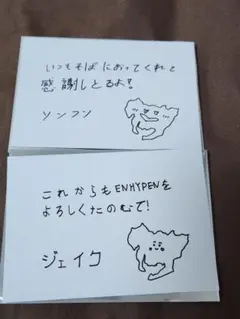 いつもそばにおってくれて
感謝しとるよ!
ソンフン
これからもENHYPENを
よろしくたのむで!
ジェイク